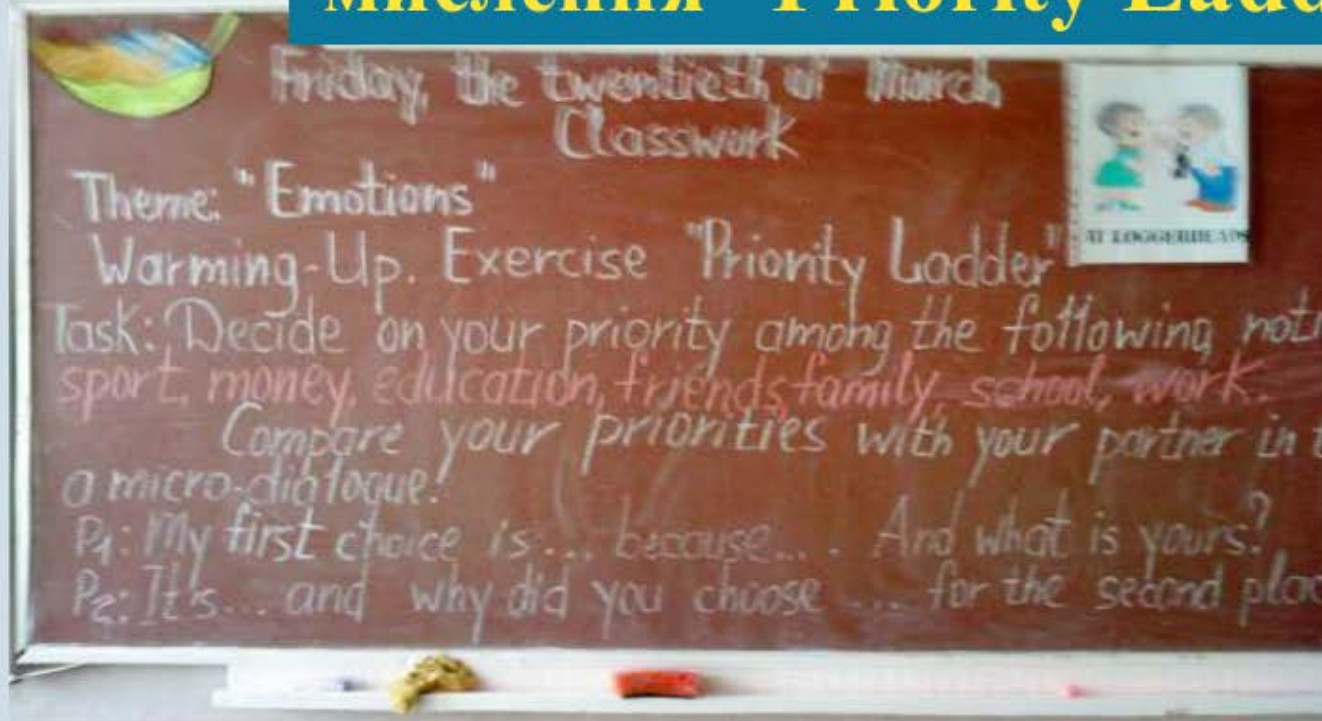 мислення "Priority Ladd
Friday, the twentieth of March
Classwork
Theme: "Emotions"
AT LOGGERHEADS
Warming-Up. Exercise "Priority Ladder"
Task: Decide on your priority among the following noti
sport, money, education, friends, family, school, work.
Compare your priorities with your partner in t
a micro-dialogue.
P1: My first choice is... because... . And what is yours?
P2: It's... and why did you choose .... for the second plac